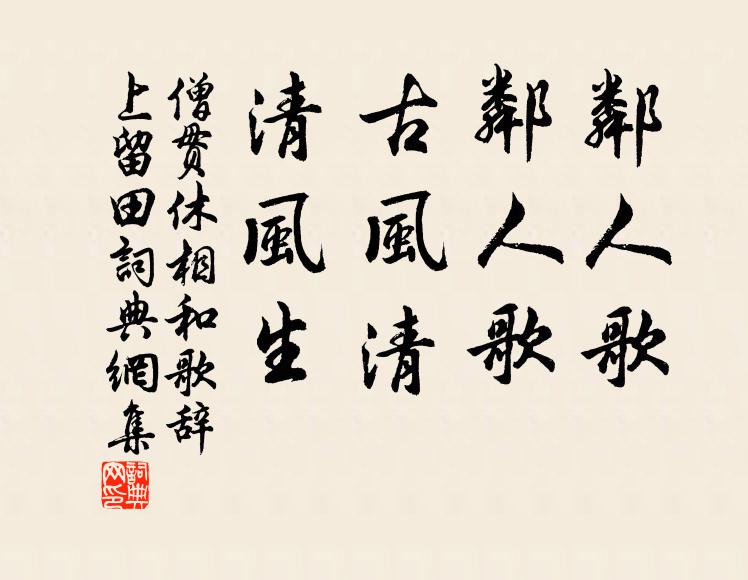 鄰人歌
鄰人歌
古風清
清風生
僧貫休相和歌辞
上留田詞典網集
詞典
网印